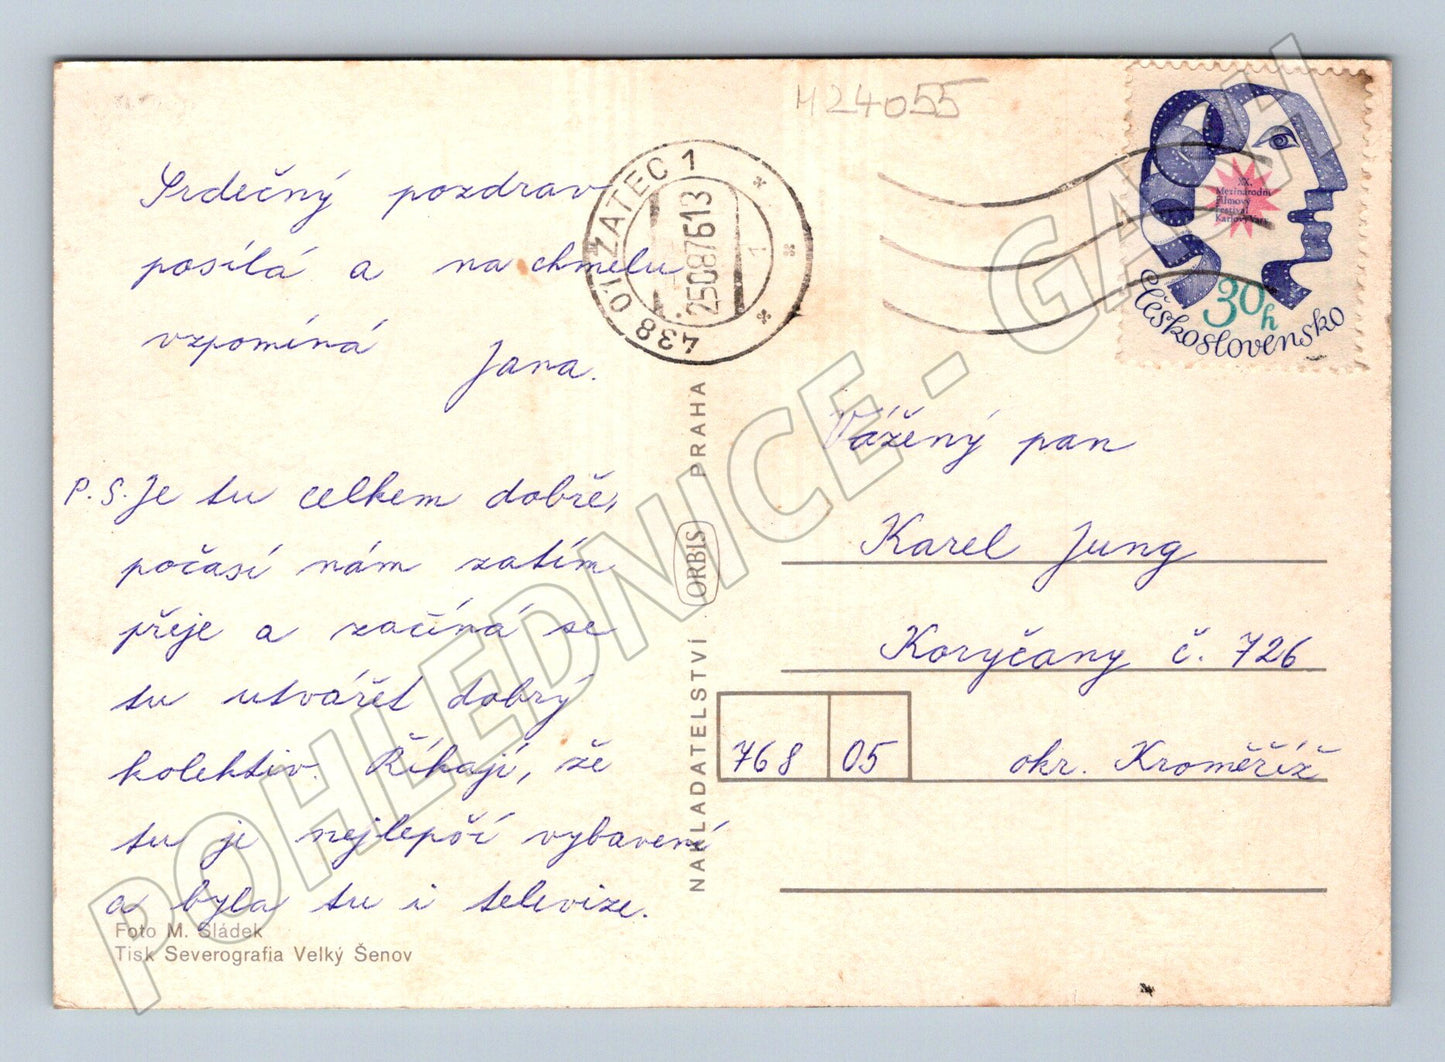 M24055
438 01 ŽATEC 1
25.08.76 13
1
XX.
Mezinárodní
Filmový
Festival
Karlovy Vary
30h
Československo
Srdečný pozdrav
posílá a na chmelu
vzpomíná
Jana.
P.S. Je tu celkem dobře,
počasí nám zatím
přeje a začíná se
tu utvářet dobrý
kolektiv. Říkají, že
tu je nejlepší vybavení
a byla tu i televize.
Foto M. Sládek
Tisk Severografia Velký Šenov
NAKLADATELSTVÍ ORBIS PRAHA
Vážený pan
Karel Jung
Koryčany č. 726
768 05 okr. Kroměříž
POHLEDNICE - GASH